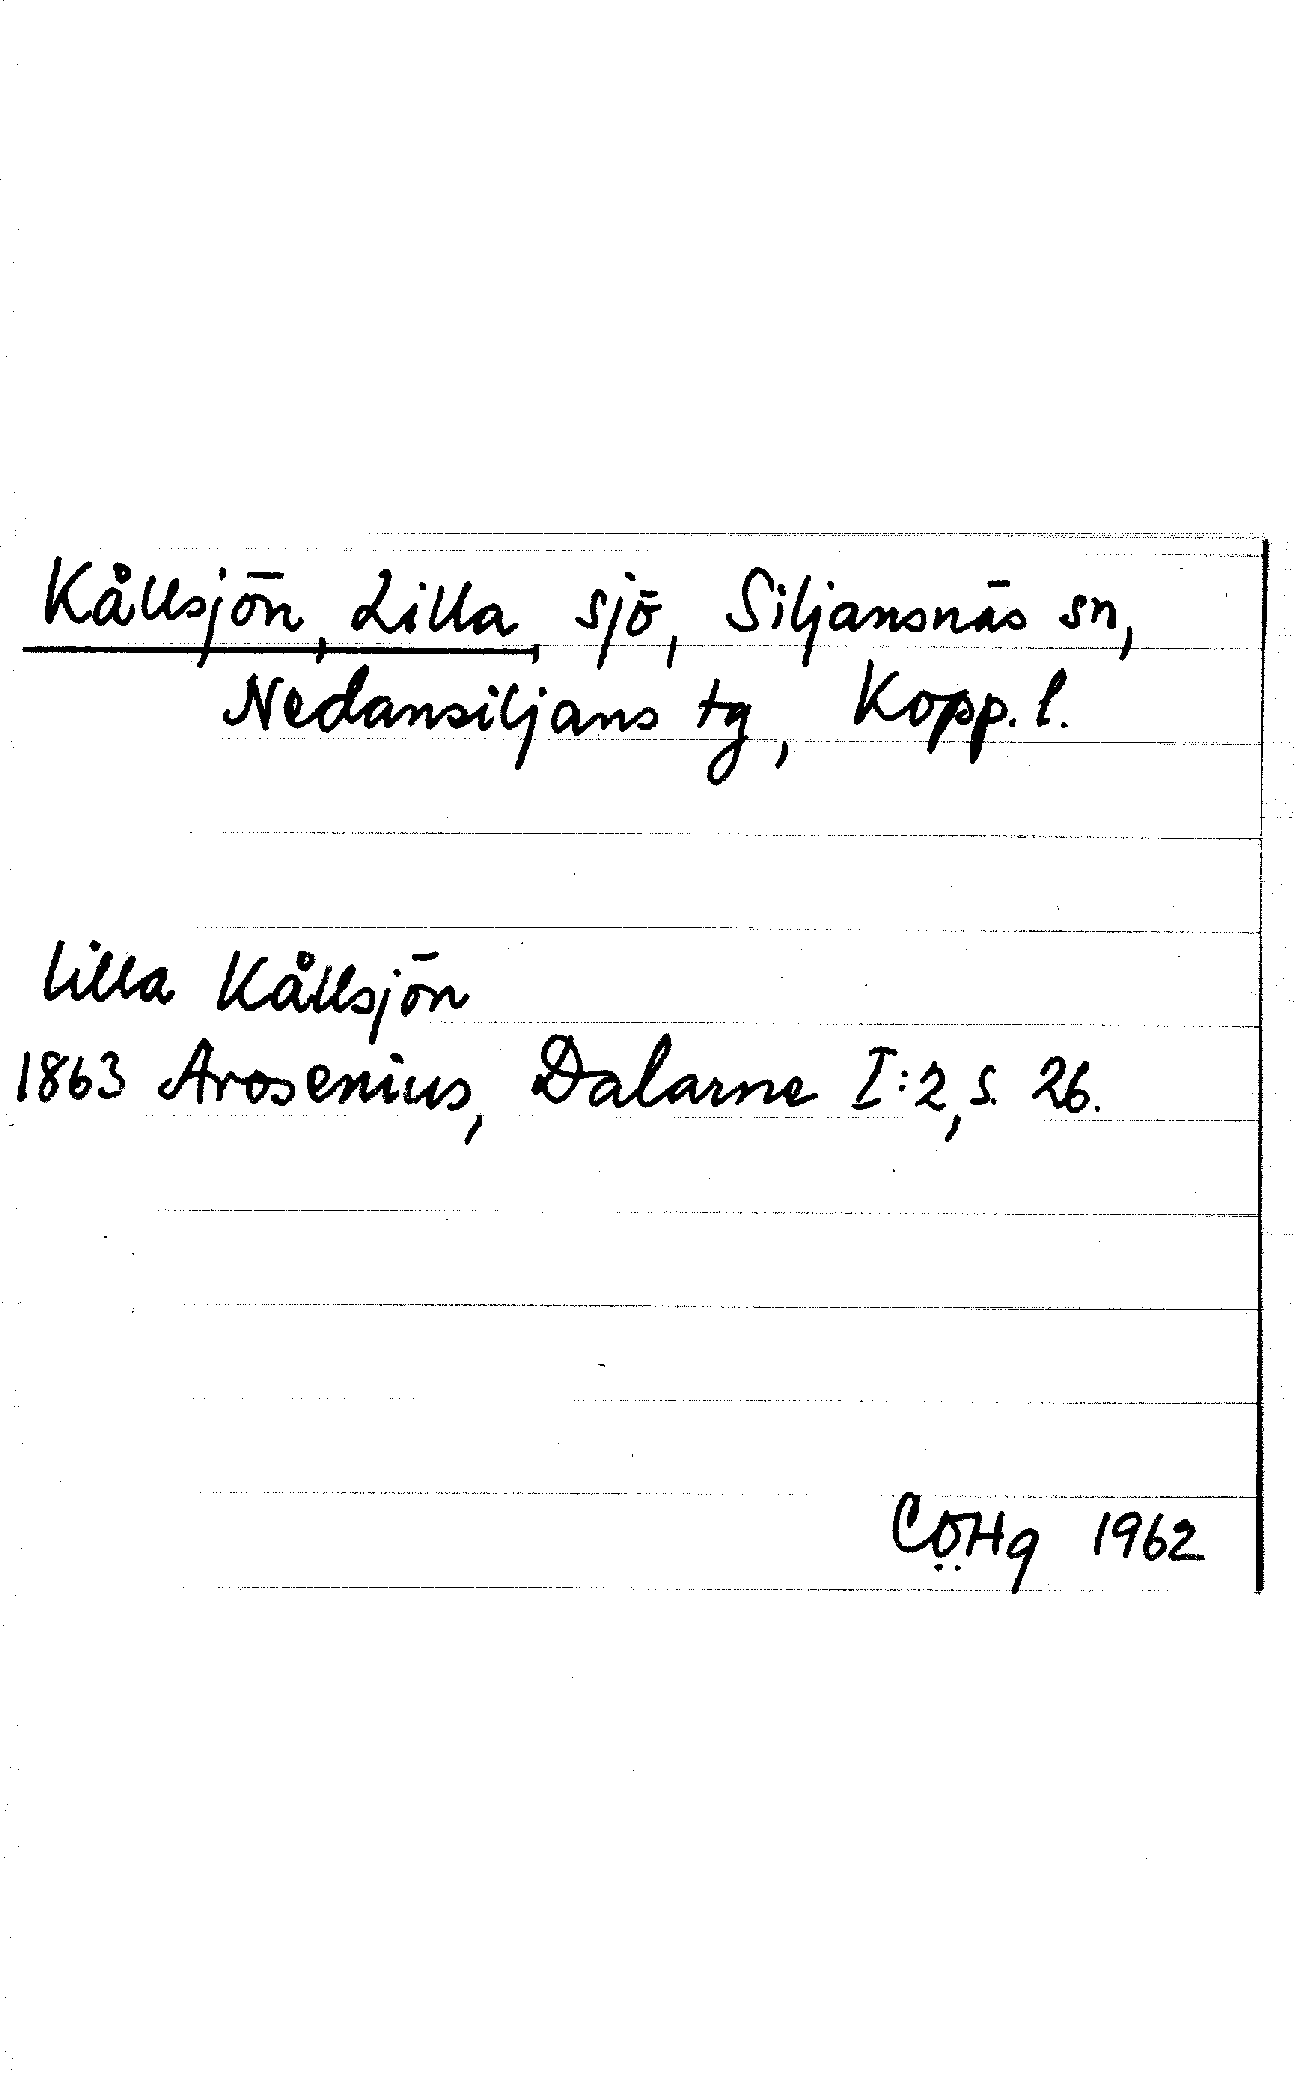 Kållsjön, Lilla, sjö, Siljansnäs sn,
Nedansiljans tg, Kopp. l.
lilla Kållsjön
1863 Arosenius, Dalarne I:2, s. 26.
CÖHg 1962